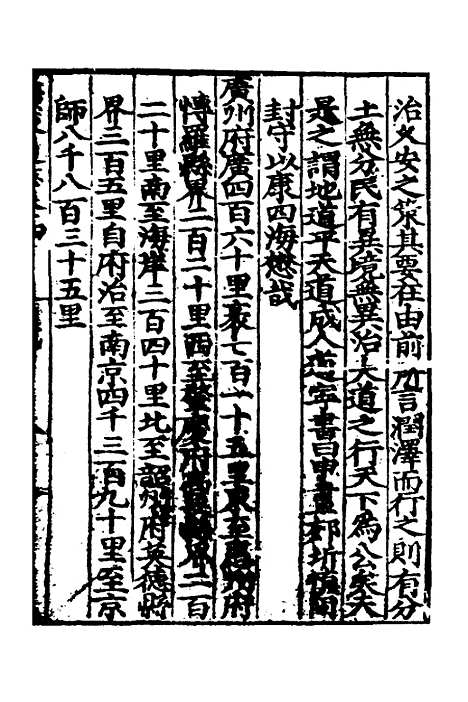 治乂安之策其要在由前所言潤澤而行之則有分
土無分民有異境無異治大道之行天下為公矣夫
是之謂地道平天道成人志寧書曰申畫郊圻慎固
封守以康四海懋哉
廣州府廣四百六十里袤七百一十五里東至惠州府
博羅縣界二百二十里西至肇慶府高要縣界二百
二十里南至海岸三百四十里北至韶州府英德縣
界三百五里自府治至南京四千三百九十里至京
師八千八百三十五里